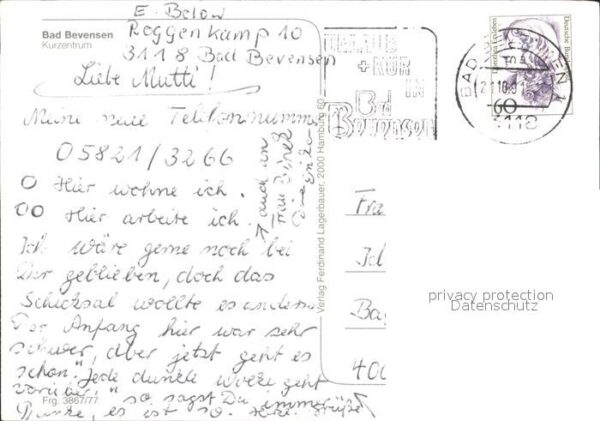 E. Below
Roggenkamp 10
3118 Bad Bevensen
Bad Bevensen
Kurzentrum
Liebe Mutti!
Meine neue Telefonnummer
05821/3266
O Hier wohne ich.
OO Hier arbeite ich.
Ich wäre gerne noch bei
Dir geblieben, doch das
Schicksal wollte es anders.
Der Anfang hier war sehr
schwer, aber jetzt geht es
schon. "Jede dunkle Wolke geht
vorüber," so sagst Du immer
Danke, es ist so. Herzl. Grüße
auch an
Frau
Deine
Frg. 3867/77
Verlag Ferdinand Lagerbauer, 2000 Hamburg 60
URLAUB
+ KUR
IN
Bad
Bevensen
BAD BEVENSEN 1
3118
Deutsche Bundes
60
Fra
Ba
400
privacy protection
Datenschutz